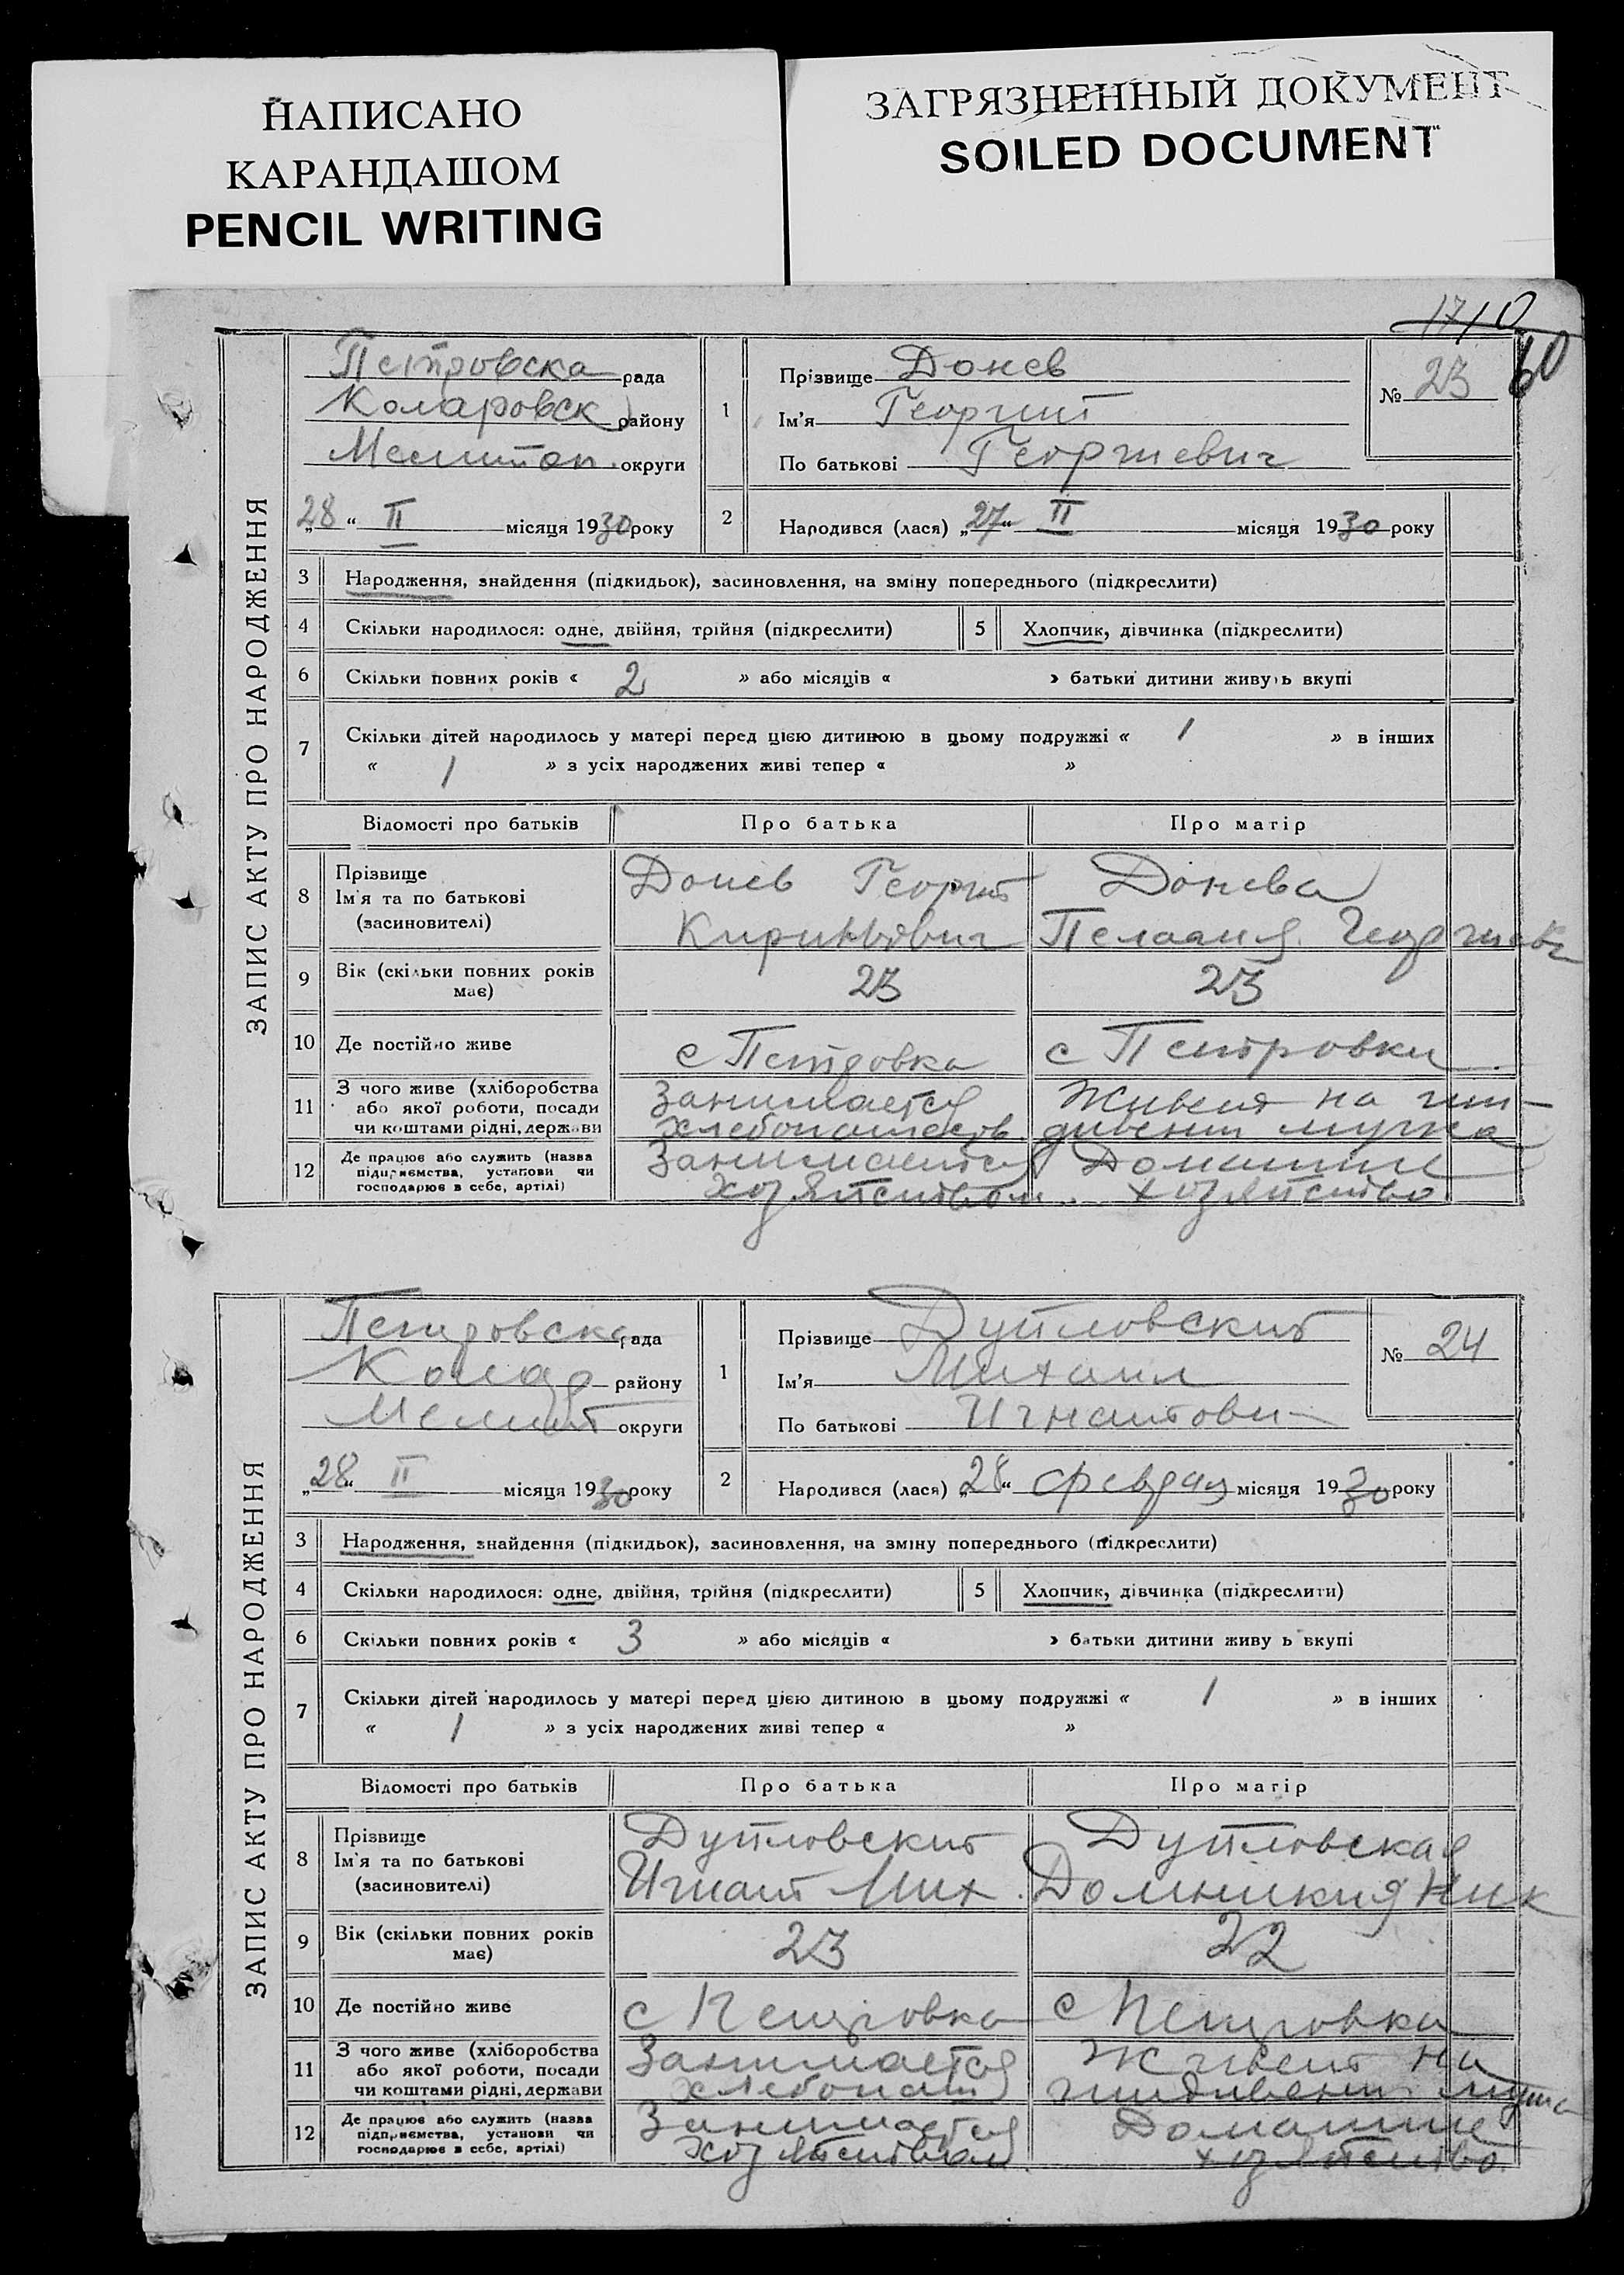 НАПИСАНО
КАРАНДАШОМ
PENCIL WRITING
ЗАГРЯЗНЕННЫЙ ДОКУМЕНТ
SOILED DOCUMENT
60
ЗАПИС АКТУ ПРО НАРОДЖЕННЯ
Петровска рада
Коларовск району
Мелитоп. округи
„28“ II місяця 1930 року
1 Прізвище Донев
Ім'я Георгий
По батькові Георгиевич
№ 23
2 Народився (лася) „27“ II місяця 1930 року
3 Народження, знайдення (підкидьок), засиновлення, на зміну попереднього (підкреслити)
4 Скільки народилося: одне, двійня, трійня (підкреслити) 5 Хлопчик, дівчинка (підкреслити)
6 Скільки повних років « 2 » або місяців « » батьки дитини живуть вкупі
7 Скільки дітей народилось у матері перед цією дитиною в цьому подружжі « 1 » в інших
« 1 » з усіх народжених живі тепер « »
Відомості про батьків Про батька Про матір
8 Прізвище
Ім'я та по батькові
(засиновителі)
Донев Георгий
Донева
Пелагия Георгиевн
9 Вік (скільки повних років
має)
23 23
10 Де постійно живе с Петровка с Петровки
11 З чого живе (хліборобства
або якої роботи, посади
чи коштами рідні, держави
Занимается
хлебопашеств.
Живет на ижи-
дивении мужа
12 Де працює або служить (назва
підприємства, установи чи
господарює в себе, артілі)
Занимается
хозяйством.
Домашние
хозяйство
ЗАПИС АКТУ ПРО НАРОДЖЕННЯ
Петровска рада
Колар району
Мелит округи
„28“ II місяця 1930 року
1 Прізвище Дутловский
Ім'я Михаил
По батькові Игнатови
№ 24
2 Народився (лася) „28“ февраля місяця 1930 року
3 Народження, знайдення (підкидьок), засиновлення, на зміну попереднього (підкреслити)
4 Скільки народилося: одне, двійня, трійня (підкреслити) 5 Хлопчик, дівчинка (підкреслити)
6 Скільки повних років « 3 » або місяців « » батьки дитини живуть вкупі
7 Скільки дітей народилось у матері перед цією дитиною в цьому подружжі « 1 » в інших
« 1 » з усіх народжених живі тепер « »
Відомості про батьків Про батька Про матір
8 Прізвище
Ім'я та по батькові
(засиновителі)
Дутловский
Игнат Мих.
Дутловская
Доминикия Ник
9 Вік (скільки повних років
має)
23 22
10 Де постійно живе с Петровка с Петровка
11 З чого живе (хліборобства
або якої роботи, посади
чи коштами рідні, держави
Занимается
хлебопаш
Живет на
иждивении мужа
12 Де працює або служить (назва
підприємства, установи чи
господарює в себе, артілі)
Занимается
хозяйством.
Домашние
хозяйство.